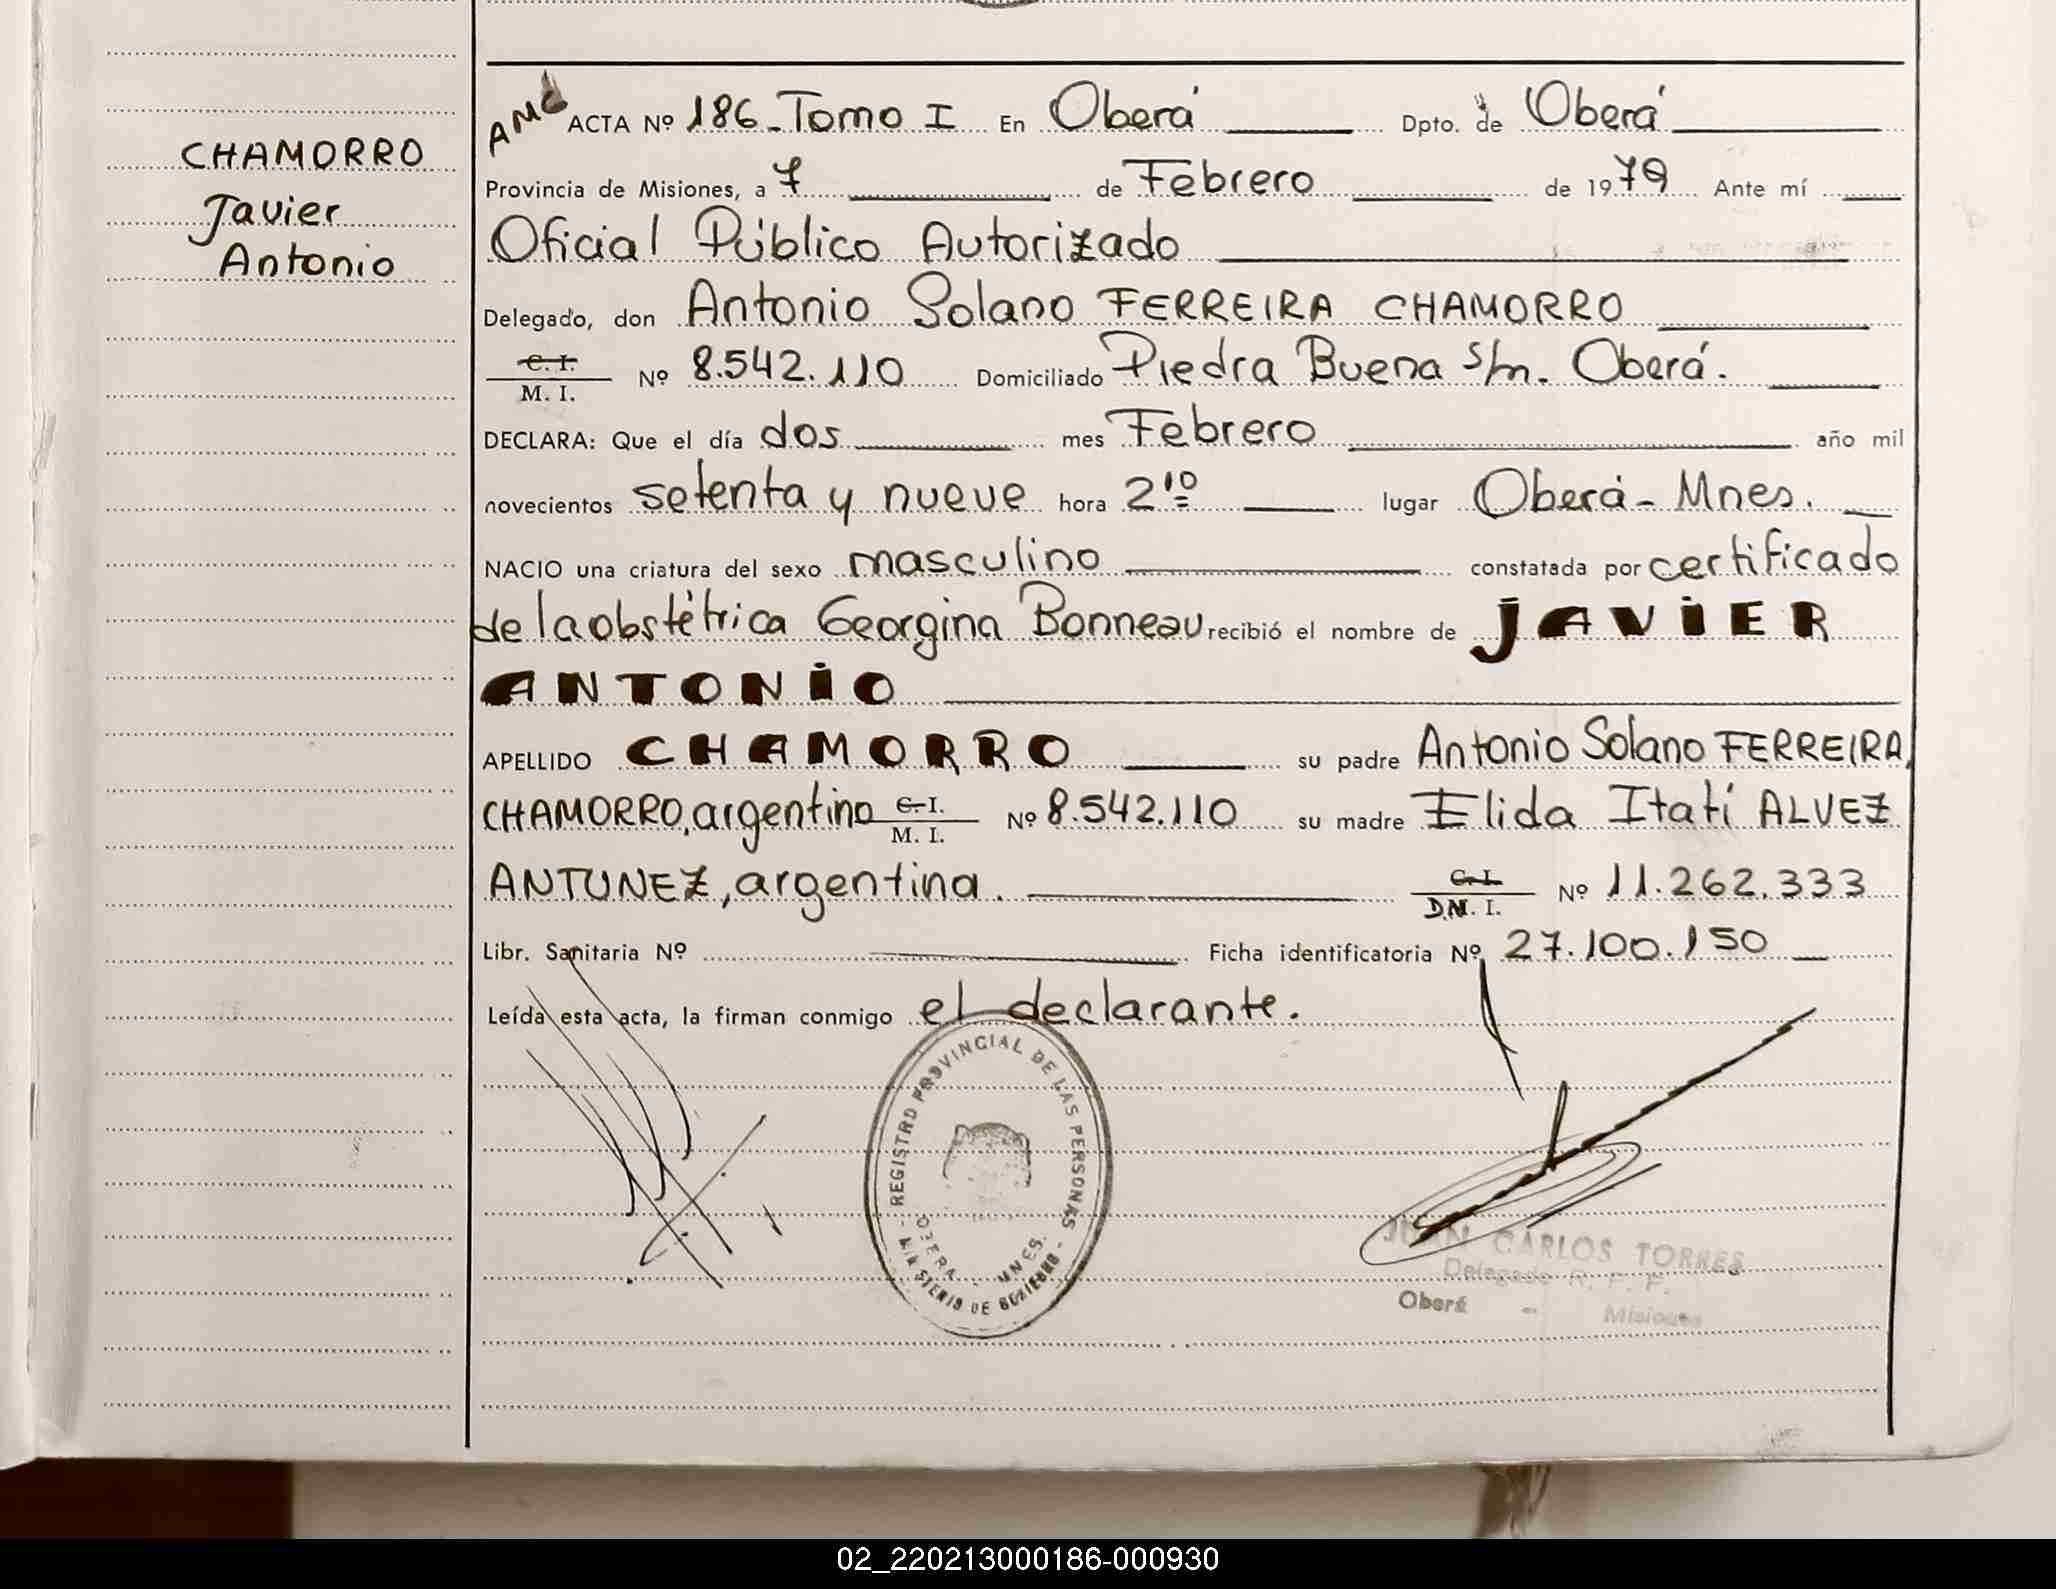 CHAMORRO
Javier
Antonio
AMC ACTA Nº 186_Tomo I En Oberá Dpto. de Oberá
Provincia de Misiones, a 7 de Febrero de 1979 Ante mí
Oficial Público Autorizado
Delegado, don Antonio Solano FERREIRA CHAMORRO
C. I. / M. I. Nº 8.542.110 Domiciliado Piedra Buena s/n. Oberá.
DECLARA: Que el día dos mes Febrero año mil
novecientos setenta y nueve hora 2¹⁰ lugar Oberá - Mnes.
NACIO una criatura del sexo masculino constatada por certificado
de la obstétrica Georgina Bonneau recibió el nombre de JAVIER
ANTONIO
APELLIDO CHAMORRO su padre Antonio Solano FERREIRA
CHAMORRO, argentino C. I. / M. I. Nº 8.542.110 su madre Elida Itatí ALVEZ
ANTUNEZ, argentina. C. I. / D.N. I. Nº 11.262.333
Libr. Sanitaria Nº Ficha identificatoria Nº 27.100.150
Leída esta acta, la firman conmigo el declarante.
REGISTRO PROVINCIAL DE LAS PERSONAS
OBERA - MNES.
MINISTERIO DE GOBIERNO
JUAN CARLOS TORRES
Delegado R. P. P.
Oberá - Misiones
02_220213000186-000930